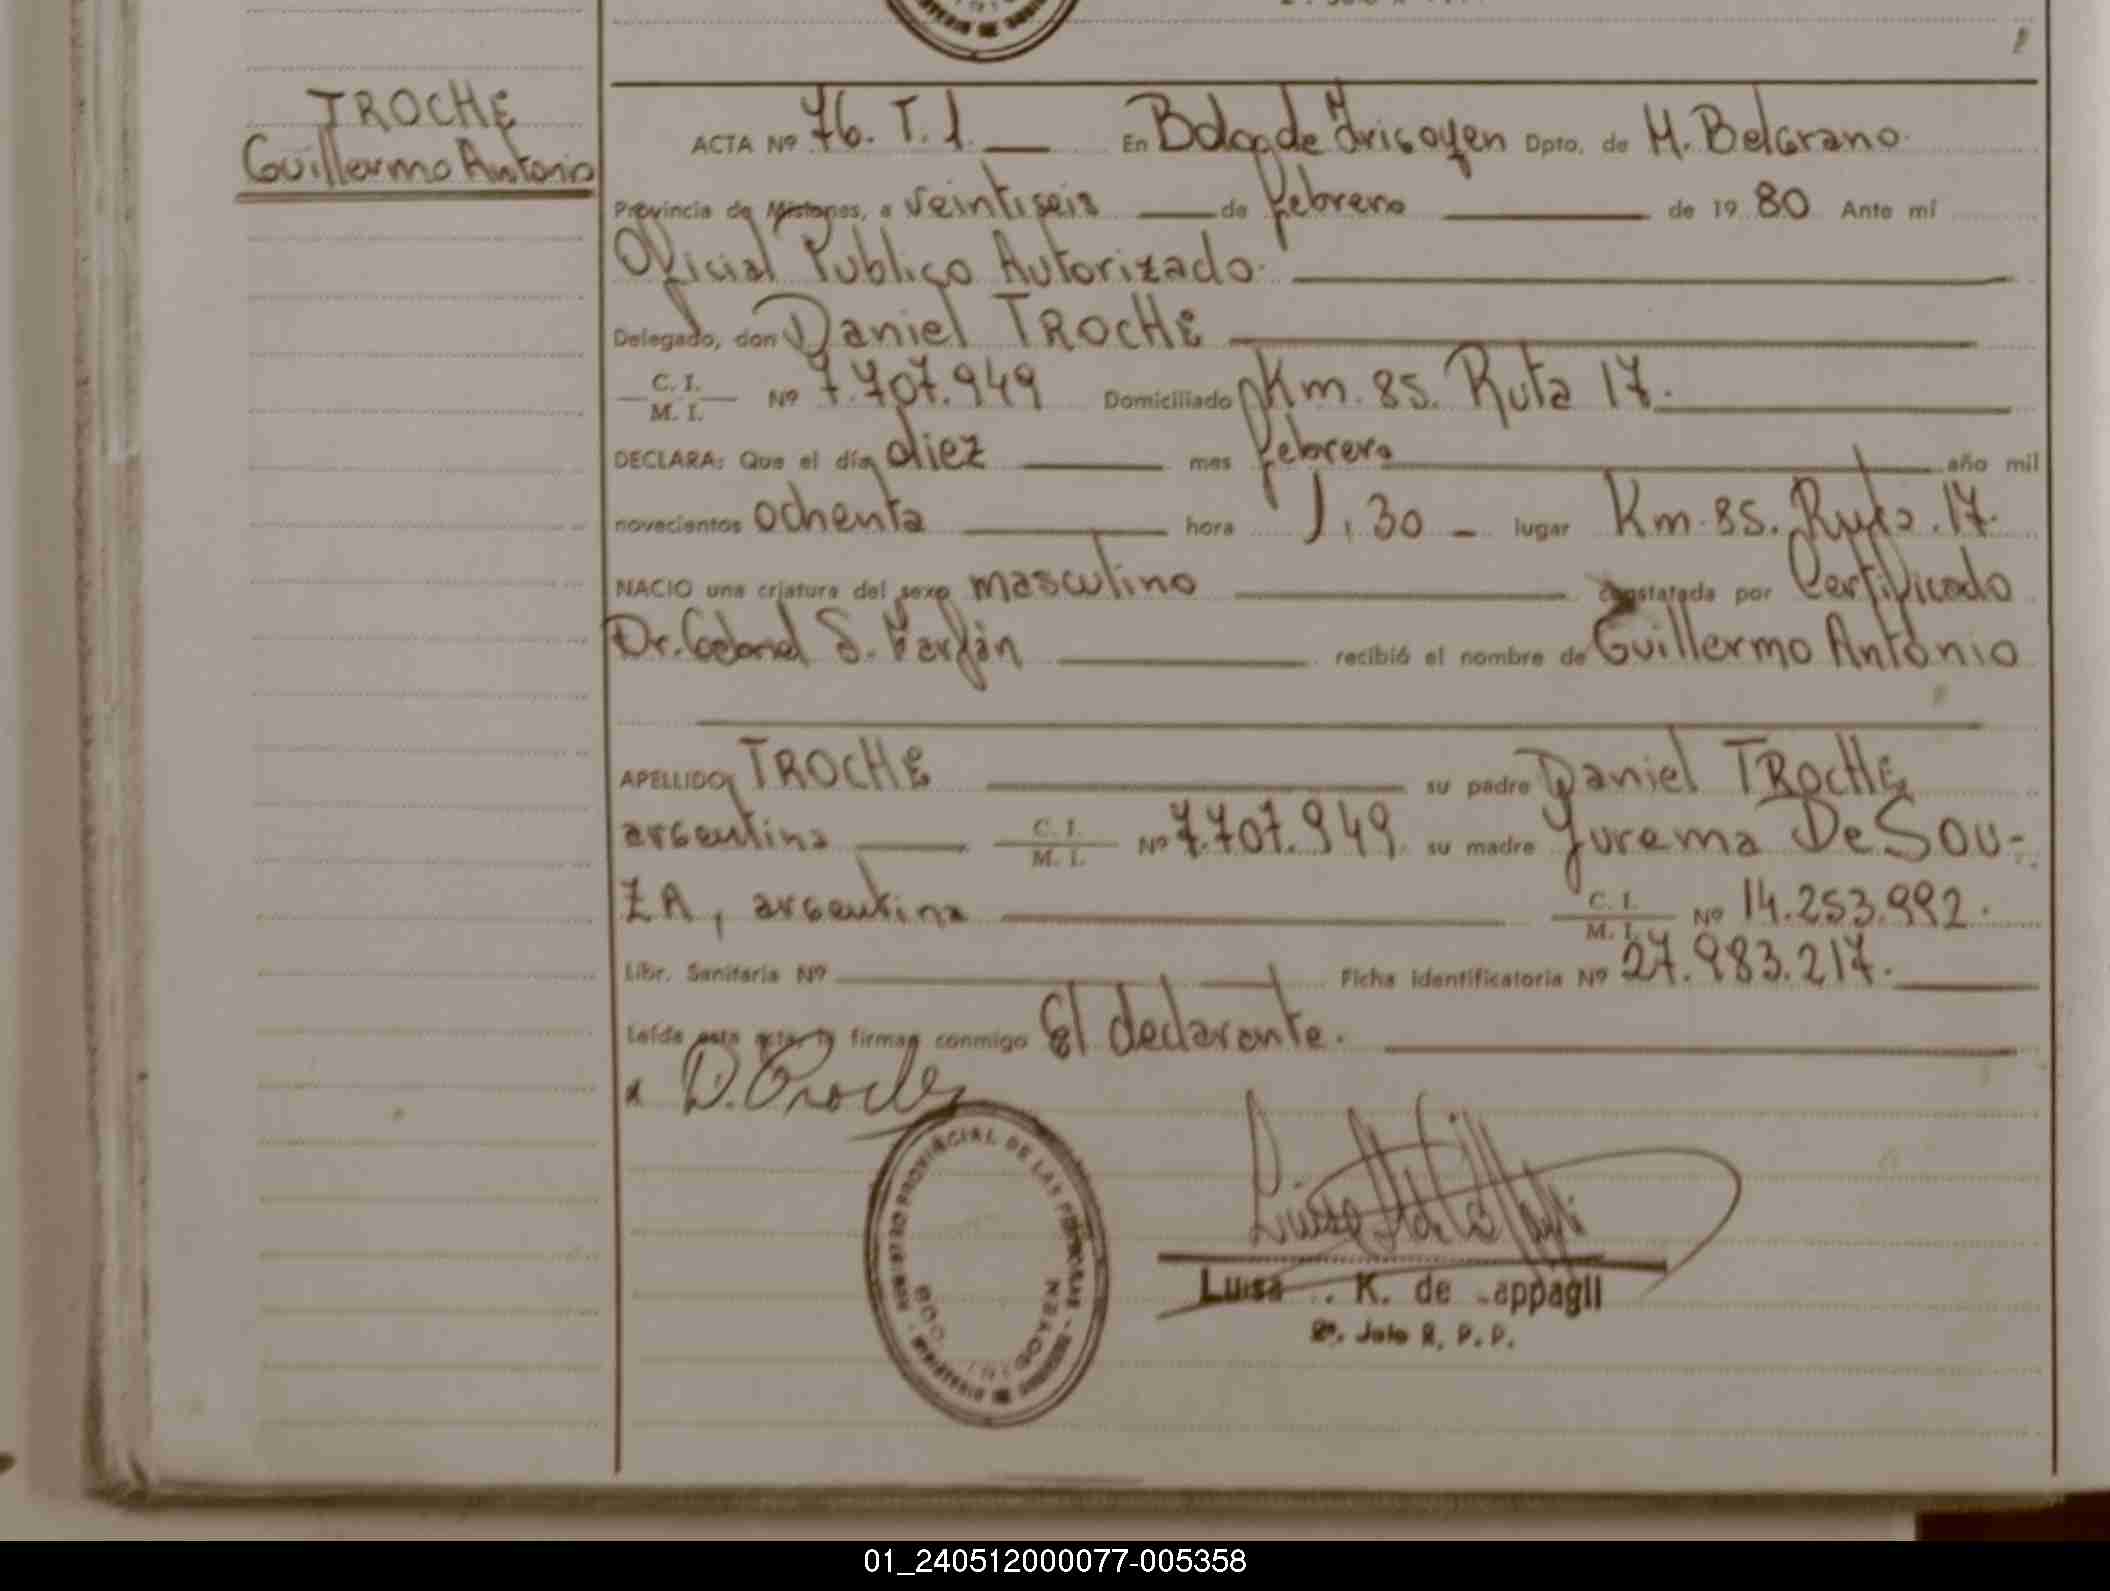 TROCHE
Guillermo Antonio
ACTA Nº 76. T. 1. En Bdo. de Irigoyen Dpto. de M. Belgrano.
Provincia de Misiones, a veintiseis de febrero de 19 80 Ante mí
Oficial Publico Autorizado.
Delegado, don Daniel TROCHE
C. I.
M. I. Nº 7.707.949 Domiciliado Km. 85. Ruta 17.
DECLARA: Que el día diez mes febrero año mil
novecientos ochenta hora 1,30 lugar Km. 85. Ruta. 17.
NACIO una criatura del sexo masculino constatada por Certificado
Dr. Gabriel S. Farfán recibió el nombre de Guillermo Antonio
APELLIDO TROCHE su padre Daniel TROCHE
argentino C. I.
M. I. Nº 7.707.949 su madre Yurema De SOU-
ZA, argentina C. I.
M. I. Nº 14.253.992.
Libr. Sanitaria Nº Ficha identificatoria Nº 27.983.217.
Leída esta acta, la firman conmigo El declarante.
x D. Troche
PROVINCIAL DE LAS PERSONAS
Luisa K. de appagli
R. P. P.
01_240512000077-005358